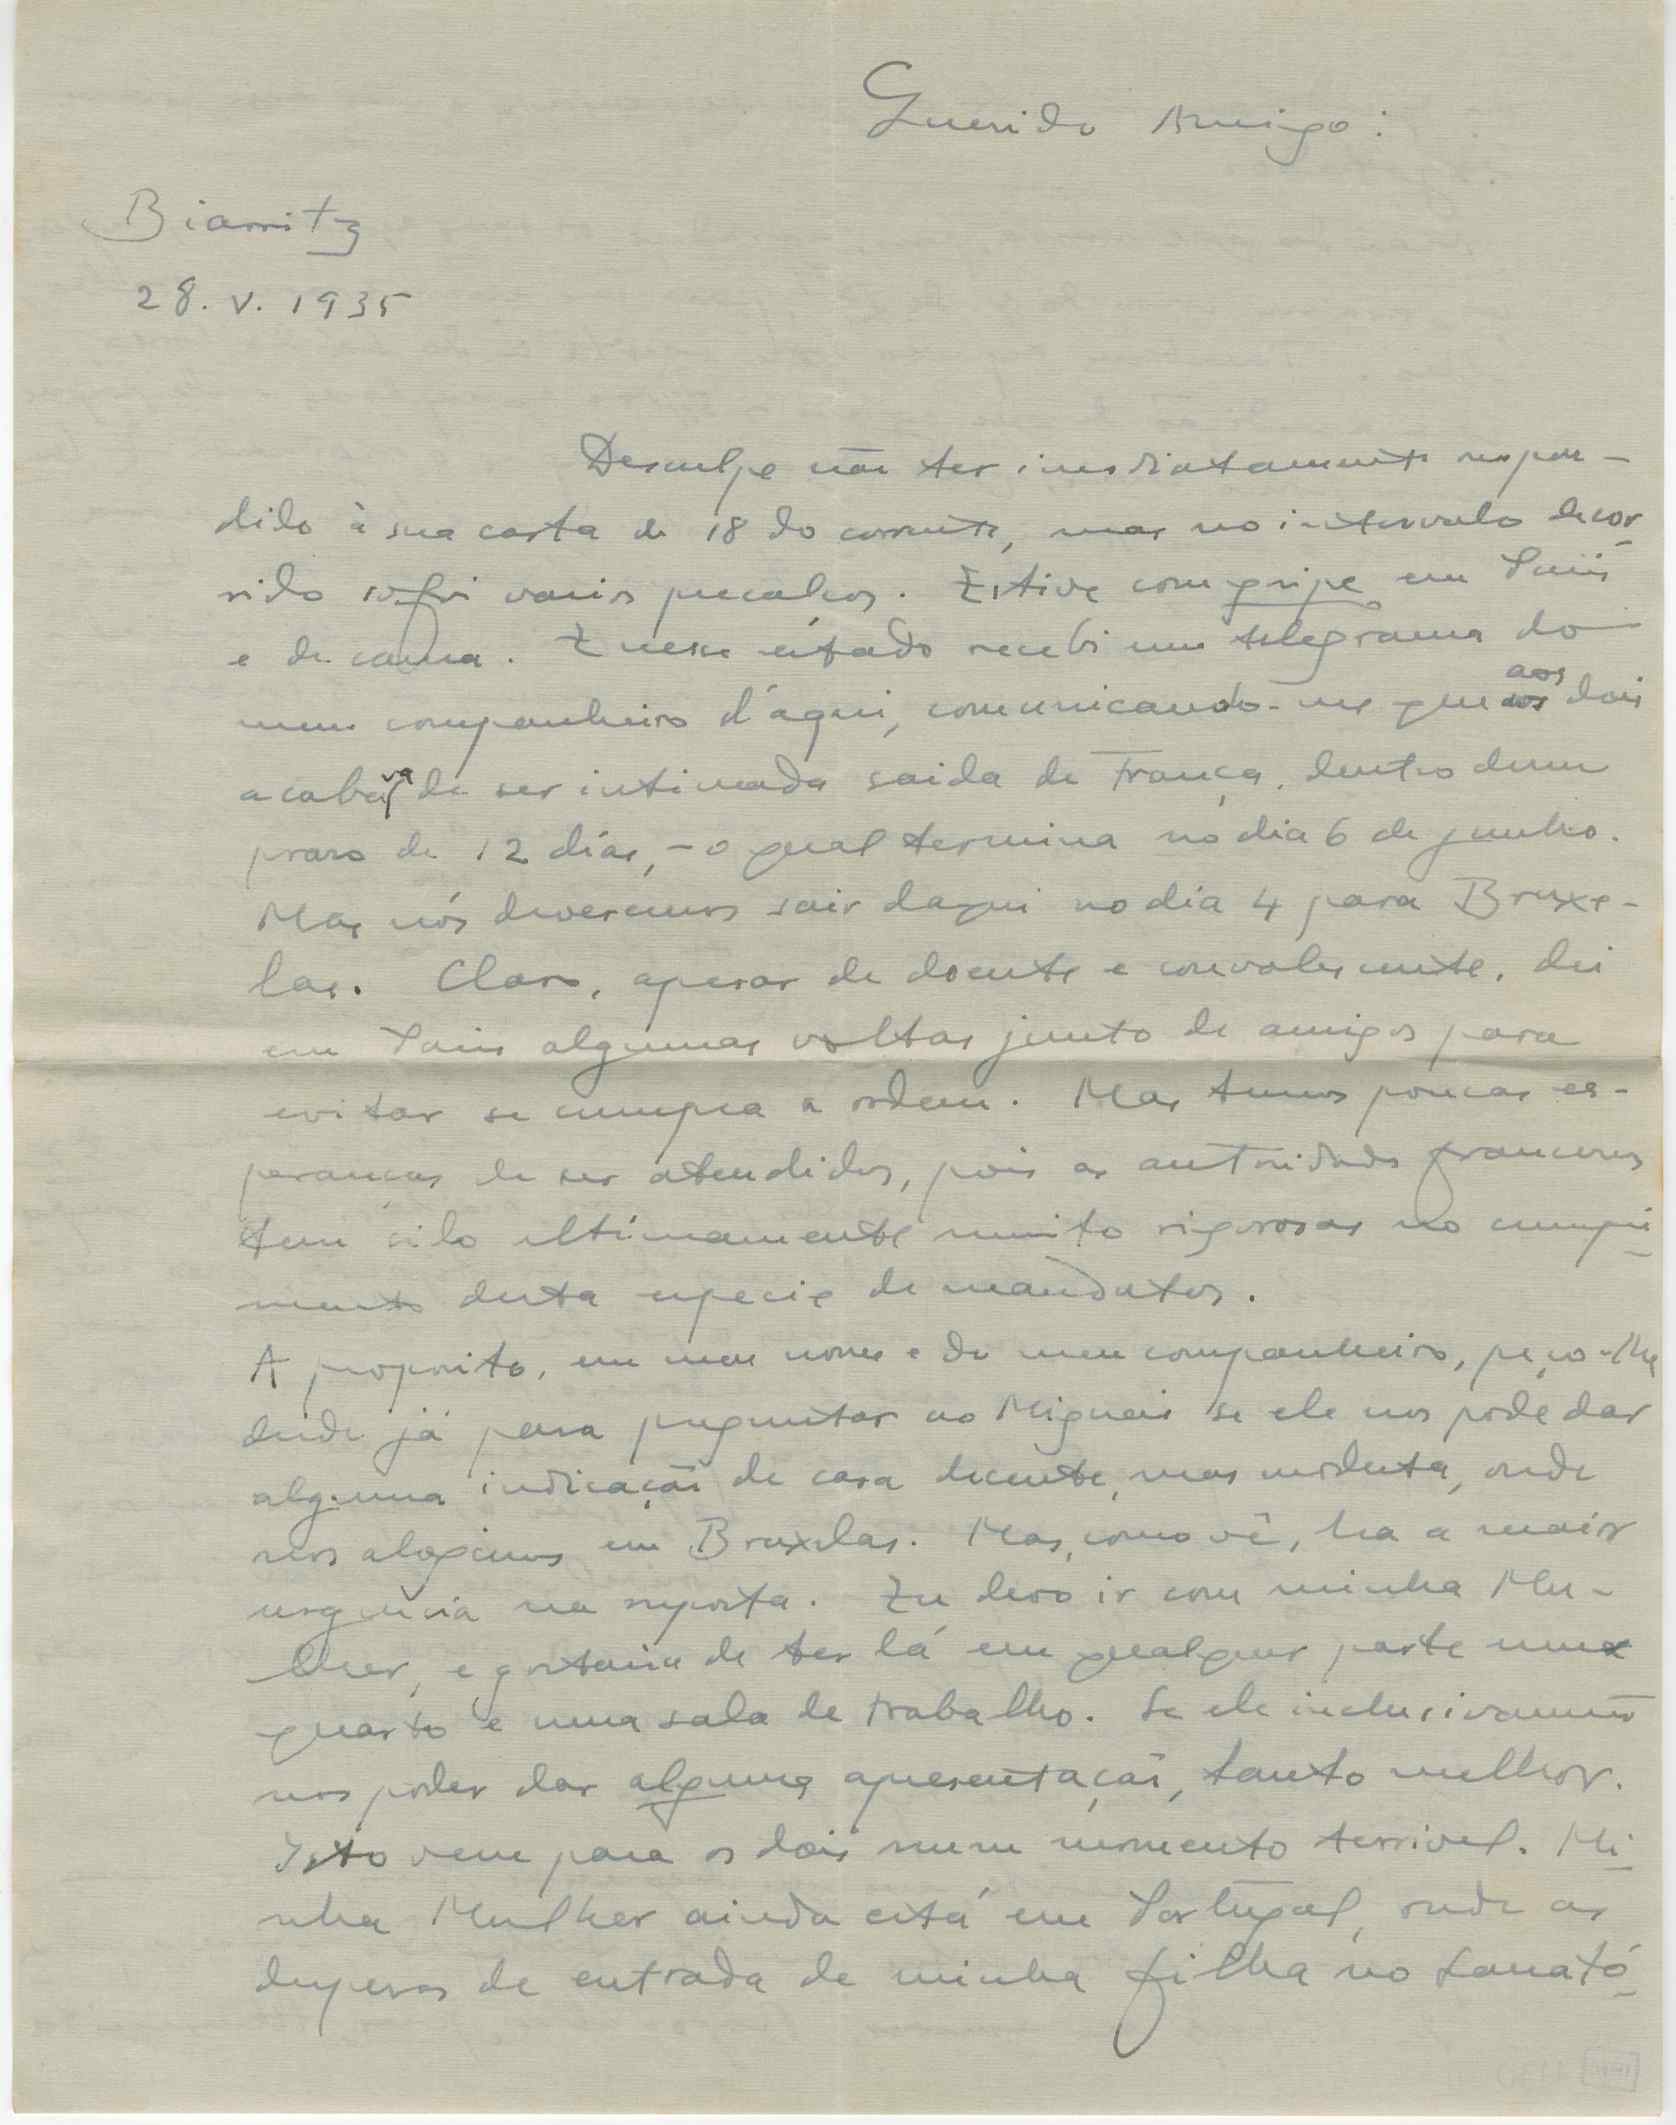 Querido Amigo:
Biarritz
28. V. 1935
Desculpe não ter imediatamente respon-
dido à sua carta de 18 do corrente, mas no intervalo decor-
rido sofri varios precalços. Estive com gripe em Paris
e de cama. E nesse estado recebi um telegrama do
meu companheiro d'aqui, comunicando-me que aos dois
acabava de ser intimada saida de França, dentro dum
praso de 12 dias, - o qual termina no dia 6 de junho.
Mas nós deveremos sair daqui no dia 4 para Bruxe-
las. Claro, apesar de doente e convalescente, dei
em Paris algumas voltas junto de amigos para
evitar se cumpra a ordem. Mas temos poucas es-
peranças de ser atendidos, pois as autoridades francesas
tem sido ultimamente muito rigorosas no cumpri-
mento desta especie de mandatos.
A proposito, em meu nome e do meu companheiro, peço-lhe
desde já para preguntar ao Migueis se ele nos póde dar
alguma indicação de casa decente, mas modesta, onde
nos alogemos em Bruxelas. Mas, como vê, ha a maior
urgencia na resposta. Eu devo ir com minha Mu-
lher, e gostaria de ter lá em qualquer parte um
quarto e uma sala de trabalho. Se ele inclusivamente
nos poder dar alguma apresentação, tanto melhor.
Isto vem para os dois num momento terrivel. Mi-
nha Mulher ainda está em Portugal, onde as
despesas de entrada de minha filha no Sanató-